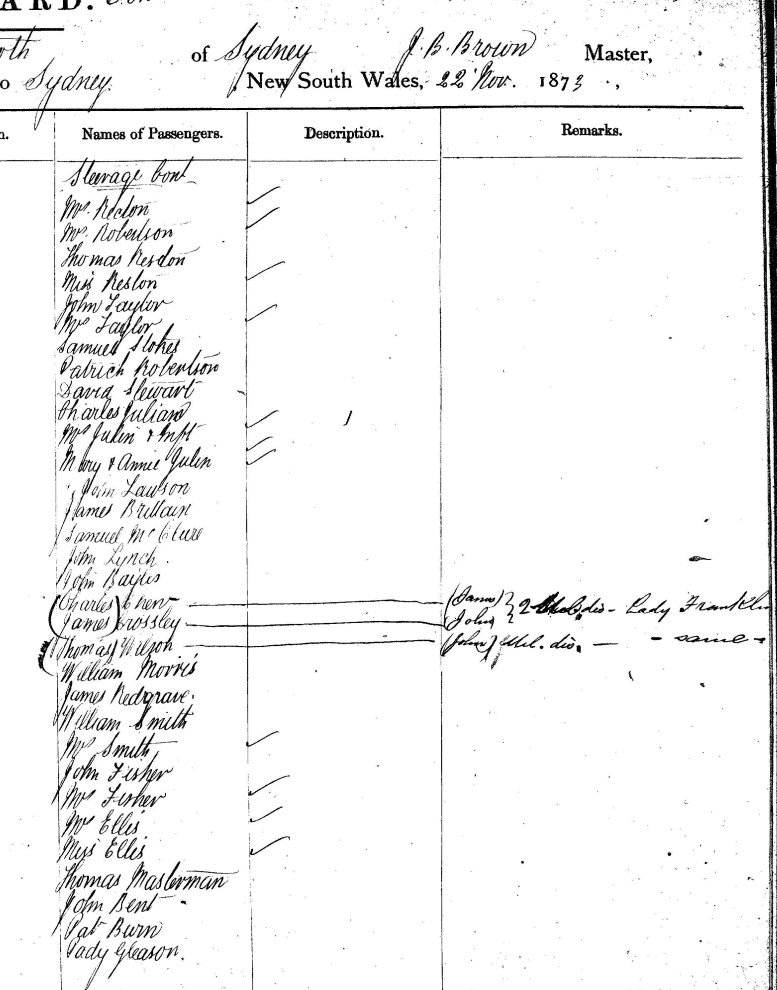 ARD.
of Sydney J. B. Brown Master,
o Sydney. New South Wales, 22 Nov. 1873.
n. Names of Passengers. Description. Remarks.
Steerage Cont
Mrs. Rection
Mrs. Robertson
Thomas Resdon
Miss Reston
John Taylor
Mrs Taylor
Samuel Stokes
Patrick Robertson
David Stewart
Charles Julian
Mrs Julin & Inft
Mary & Annie Julin
John Lawson
James Brittain
Samuel McClure
John Lynch.
John Bayles
(Charles) Chew (James)
(James) Crossley (John) } 2 dis - Lady Franklin
(Thomas) Wilson (John) dis. - - same -
William Morris
James Redgrave.
William Smith
Mrs Smith
John Fisher
Mrs Fisher
Mrs Ellis
Miss Ellis
Thomas Masterman
John Bent -
Pat Burn
Pady Gleason.